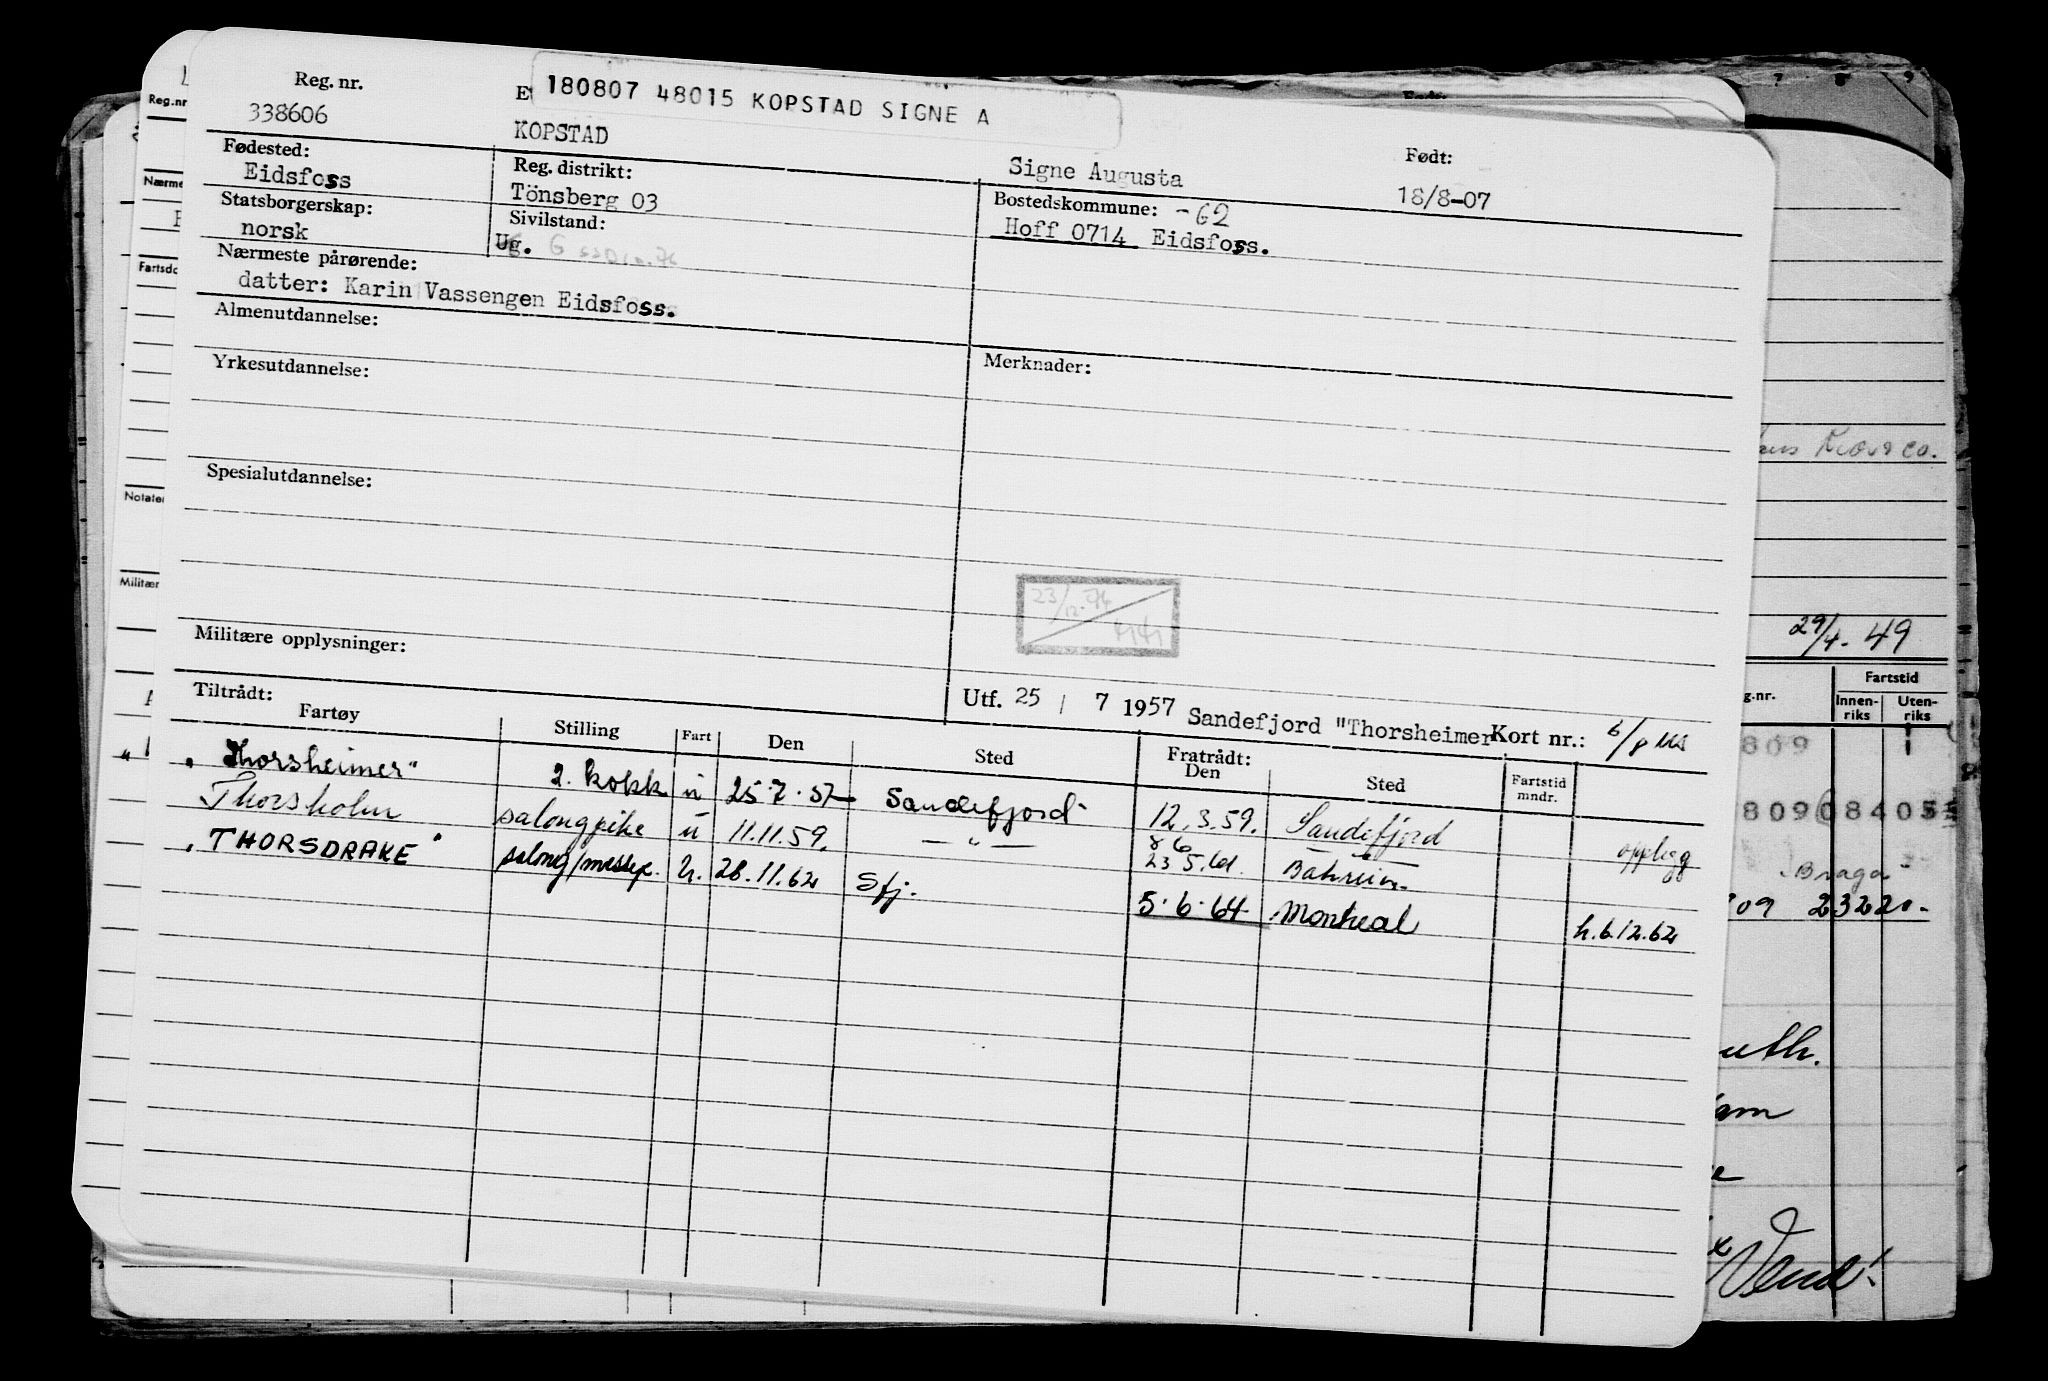 180807 48015 KOPSTAD SIGNE A
Reg. nr. E
338606 KOPSTAD Signe Augusta Født: 18/8-07
Fødested: Reg. distrikt: Bostedskommune: -62
Eidsfoss Tönsberg 03 Hoff 0714 Eidsfoss.
Statsborgerskap: Sivilstand:
norsk Ug. G
Nærmeste pårørende:
datter: Karin Vassengen Eidsfoss.
Almenutdannelse:
Yrkesutdannelse: Merknader:
Spesialutdannelse:
23/12-74
Militære opplysninger:
Tiltrådt: Utf. 25 / 7 1957 Sandefjord "Thorsheimer Kort nr.:
Fartøy Stilling Fart Den Sted Fratrådt: Den Sted Fartstid mndr.
"Thorsheimer" 2. kokk u 25.7.57 Sandefjord 12.3.59. Sandefjord opplegg
Thorsholm salongpike u 11.11.59. — " — 23 5.61. Bahrein
"THORSDRAKE" salong/messep. u. 28.11.62 Sfj. 5.6.64 Montreal h.6.12.62
Reg.nr
Nærme
Fartsdo
Notater
Militær
29/4-49
g.nr. Fartstid
Innenriks Utenriks
809
809 08405
"Braga"
709 23220.-
Vend!